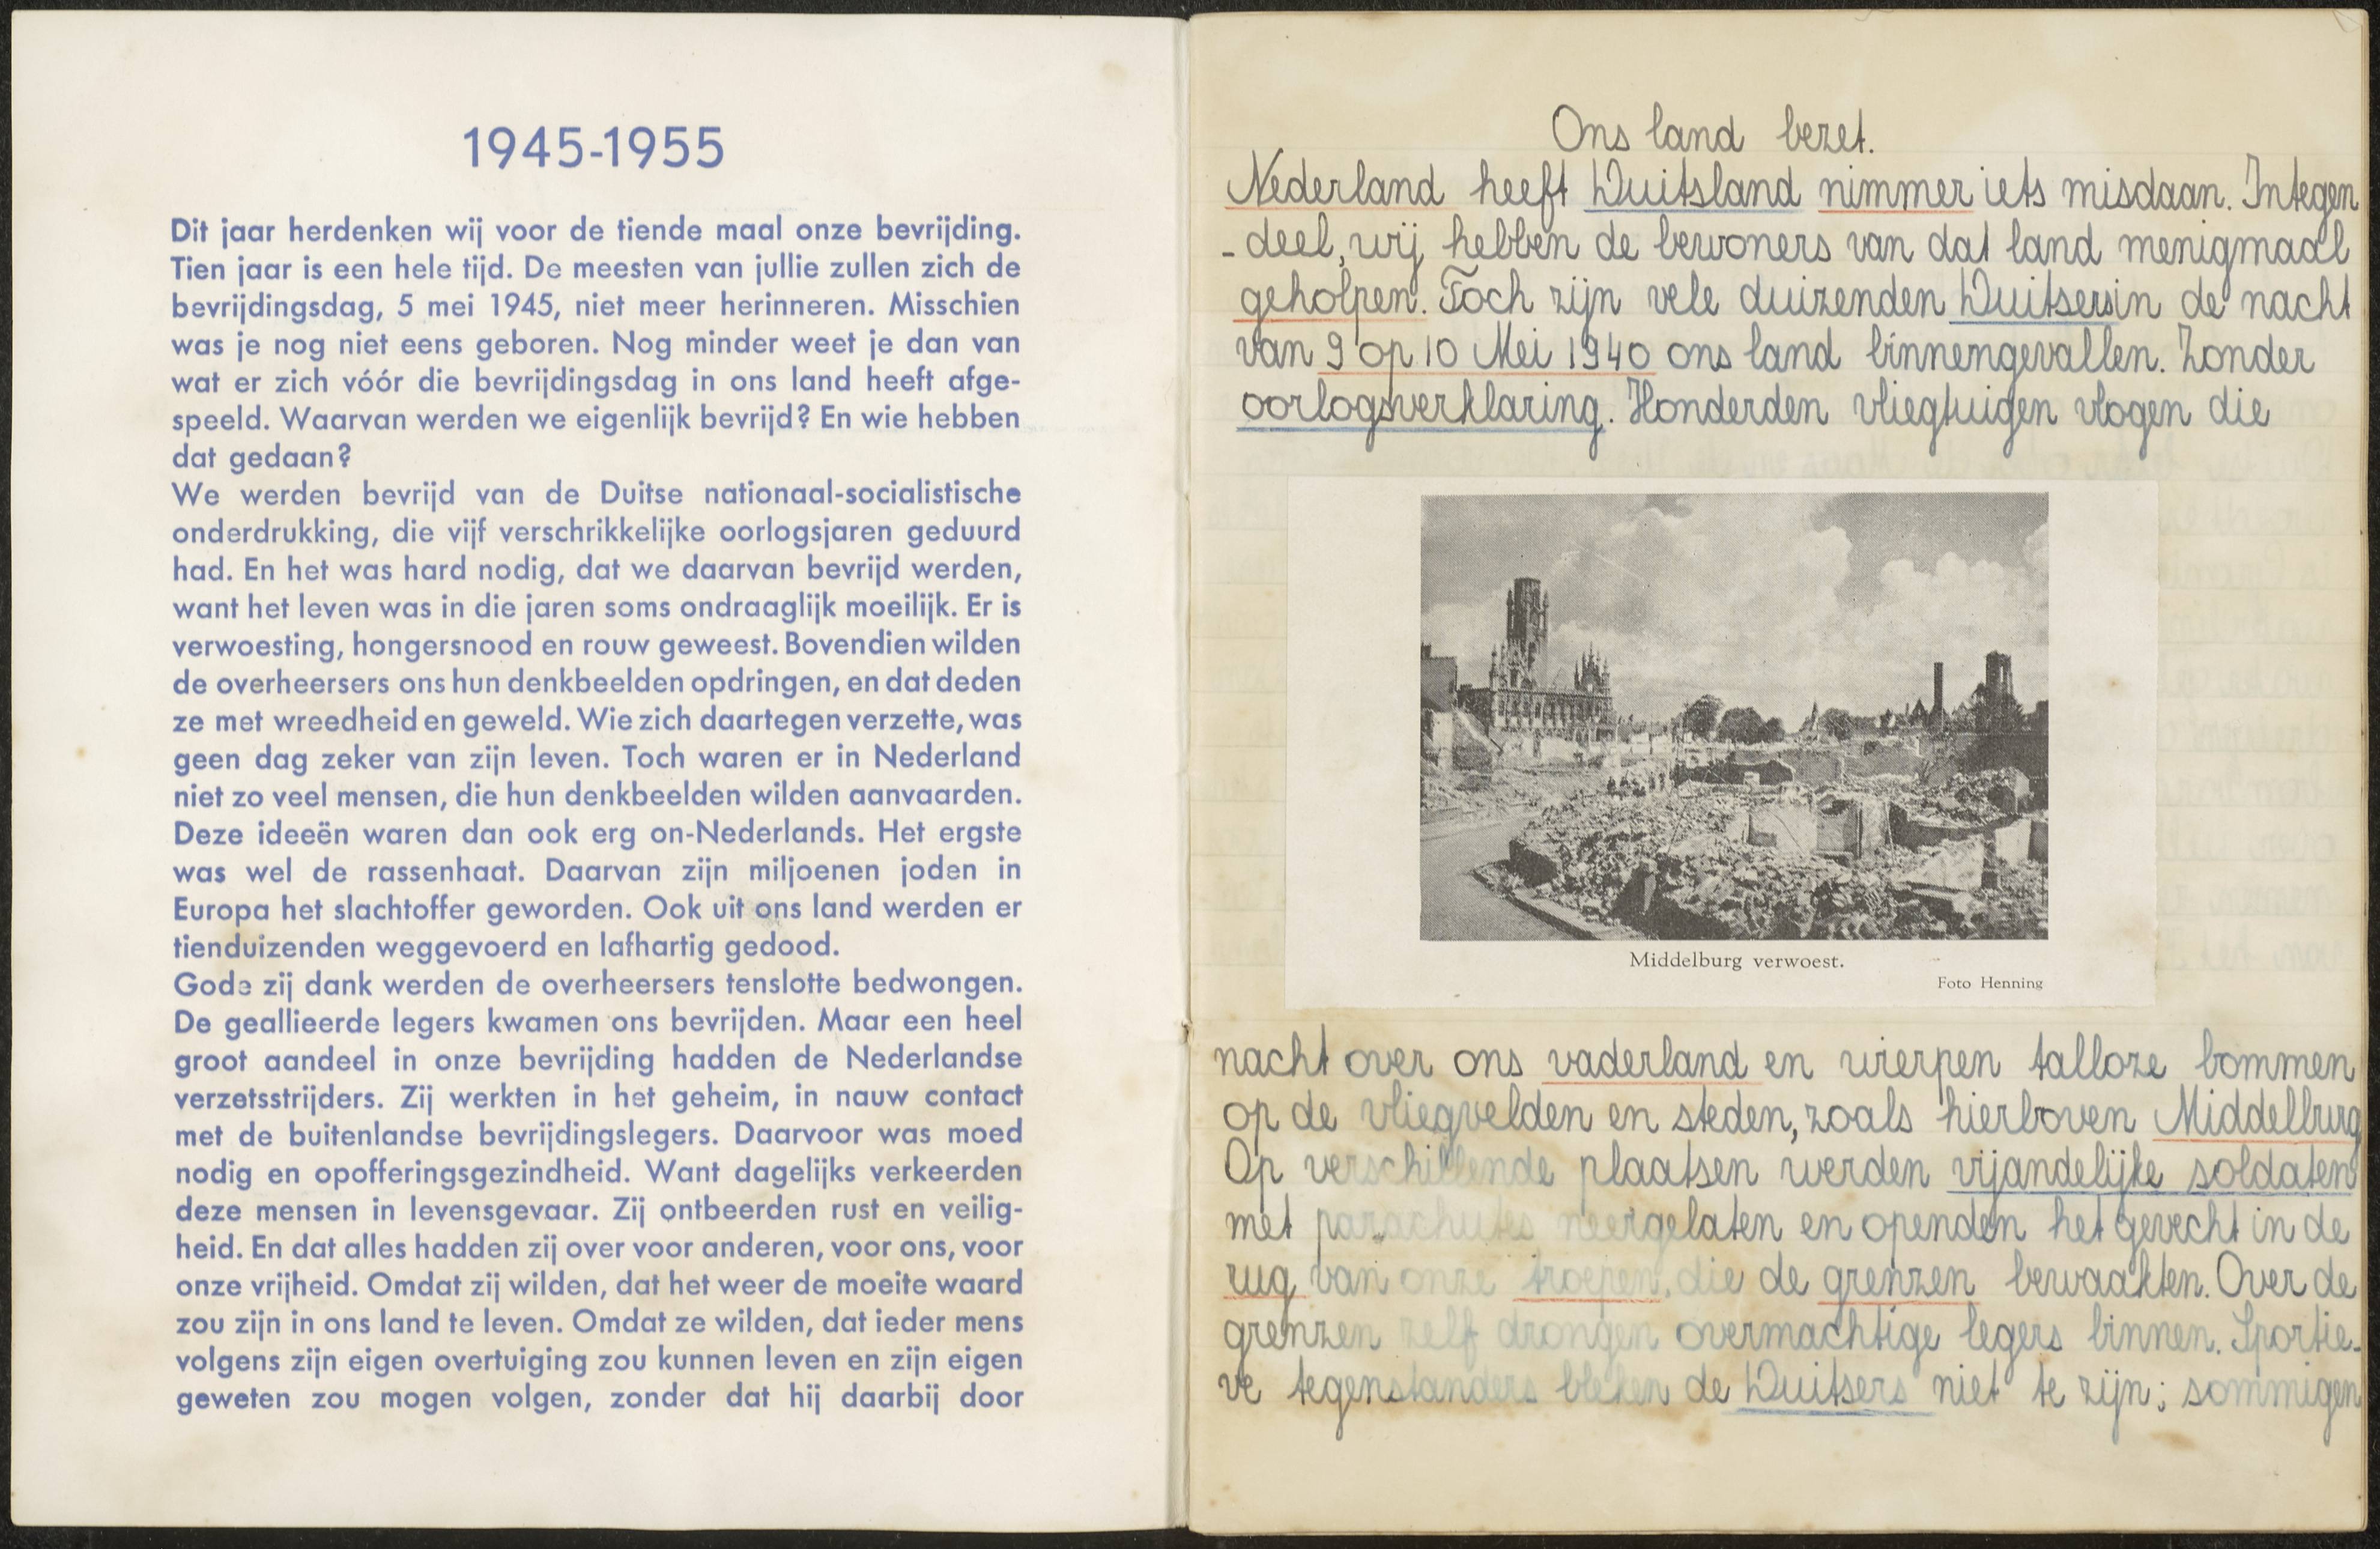 1945-1955
Dit jaar herdenken wij voor de tiende maal onze bevrijding.
Tien jaar is een hele tijd. De meesten van jullie zullen zich de
bevrijdingsdag, 5 mei 1945, niet meer herinneren. Misschien
was je nog niet eens geboren. Nog minder weet je dan van
wat er zich vóór die bevrijdingsdag in ons land heeft afge-
speeld. Waarvan werden we eigenlijk bevrijd? En wie hebben
dat gedaan?
We werden bevrijd van de Duitse nationaal-socialistische
onderdrukking, die vijf verschrikkelijke oorlogsjaren geduurd
had. En het was hard nodig, dat we daarvan bevrijd werden,
want het leven was in die jaren soms ondraaglijk moeilijk. Er is
verwoesting, hongersnood en rouw geweest. Bovendien wilden
de overheersers ons hun denkbeelden opdringen, en dat deden
ze met wreedheid en geweld. Wie zich daartegen verzette, was
geen dag zeker van zijn leven. Toch waren er in Nederland
niet zo veel mensen, die hun denkbeelden wilden aanvaarden.
Deze ideeën waren dan ook erg on-Nederlands. Het ergste
was wel de rassenhaat. Daarvan zijn miljoenen joden in
Europa het slachtoffer geworden. Ook uit ons land werden er
tienduizenden weggevoerd en lafhartig gedood.
Gode zij dank werden de overheersers tenslotte bedwongen.
De geallieerde legers kwamen ons bevrijden. Maar een heel
groot aandeel in onze bevrijding hadden de Nederlandse
verzetsstrijders. Zij werkten in het geheim, in nauw contact
met de buitenlandse bevrijdingslegers. Daarvoor was moed
nodig en opofferingsgezindheid. Want dagelijks verkeerden
deze mensen in levensgevaar. Zij ontbeerden rust en veilig-
heid. En dat alles hadden zij over voor anderen, voor ons, voor
onze vrijheid. Omdat zij wilden, dat het weer de moeite waard
zou zijn in ons land te leven. Omdat ze wilden, dat ieder mens
volgens zijn eigen overtuiging zou kunnen leven en zijn eigen
geweten zou mogen volgen, zonder dat hij daarbij door
Ons land bezet.
Nederland heeft Duitsland nimmer iets misdaan. Integen
-deel, wij hebben de bewoners van dat land menigmaal
geholpen. Toch zijn vele duizenden Duitsers in de nacht
van 9 op 10 Mei 1940 ons land binnengevallen. Zonder
oorlogsverklaring. Honderden vliegtuigen vlogen die
Middelburg verwoest.
Foto Henning
nacht over ons vaderland en wierpen talloze bommen
op de vliegvelden en steden, zoals hierboven Middelburg
Op verschillende plaatsen werden vijandelijke soldaten
met parachutes neergelaten en openden het gevecht in de
rug van onze troepen, die de grenzen bewaakten. Over de
grenzen zelf drongen overmachtige legers binnen. Sportie-
ve tegenstanders bleken de Duitsers niet te zijn; sommigen